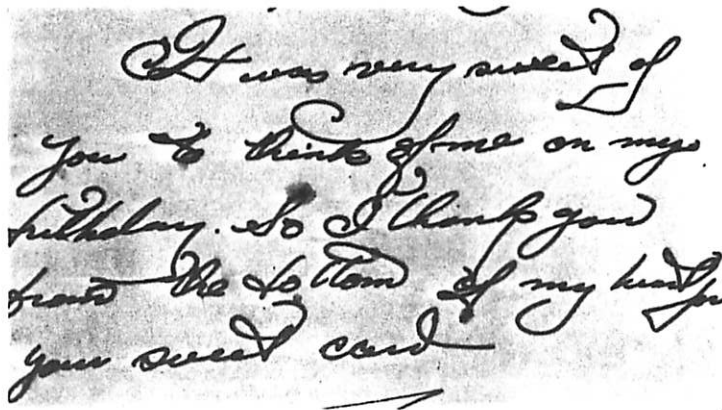 It was very sweet of
you to think of me on my
birthday. So I thank you
from the bottom of my heart for
your sweet card